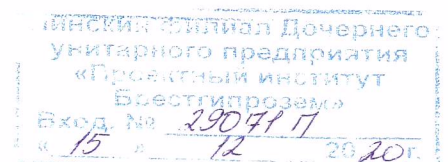 филиал Дочернего
унитарного предприятия
«Проектный институт
Брестгипрозем»
Вход. № 29071 П
« 15 » 12 2020г.